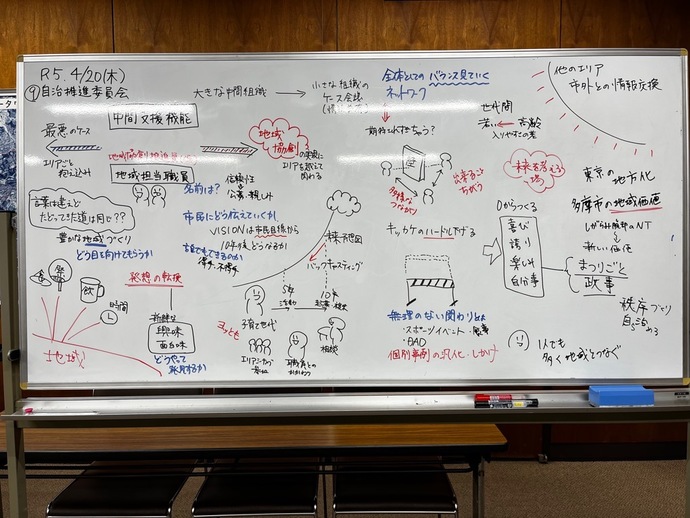 R5. 4/20(木)
⑨自治推進委員会
中間支援機能
最悪のケース
エリアごと
抱え込み
地域担当職員
大きな中間組織
小さな組織の
ケース会議
地域
協創
の実現に
エリアを越えて
関わる
信頼性
公募・親しみ
言葉は違えど
たどってきた道は同じ??
豊かな地域づくり
どう目を向けてもらうか
食
祭
飲
時間
地域
発想の転換
新鮮な
興味
面白味
どうやって
名前は?
市民にどう伝えていくか
VISIONは市民目線から
10年後どうなるか
得手・不得手
未来予想図
バックキャスティング
5年
活動
10年
もっとも
子育て世代
エリアミーティングで
職員との
相談
全体としてのバランス見ていく
ネットワーク
期待されてそう?
多様な
つながり
出来ること
ちがう
世代間
若い
高齢
キッカケのハードル下げる
無理のない関わり
・スポーツイベント・農業
・BAO
個別事例の汎化・しかけ
他のエリア
市外との情報交換
未来を考える
場
0からつくる
喜び
誇り
楽しみ
自分事
東京の地方化
多摩市の地域価値
新しい価値
まつりごと
政事
秩序づくり
自ら治める
1人でも
多く地域とつなぐ